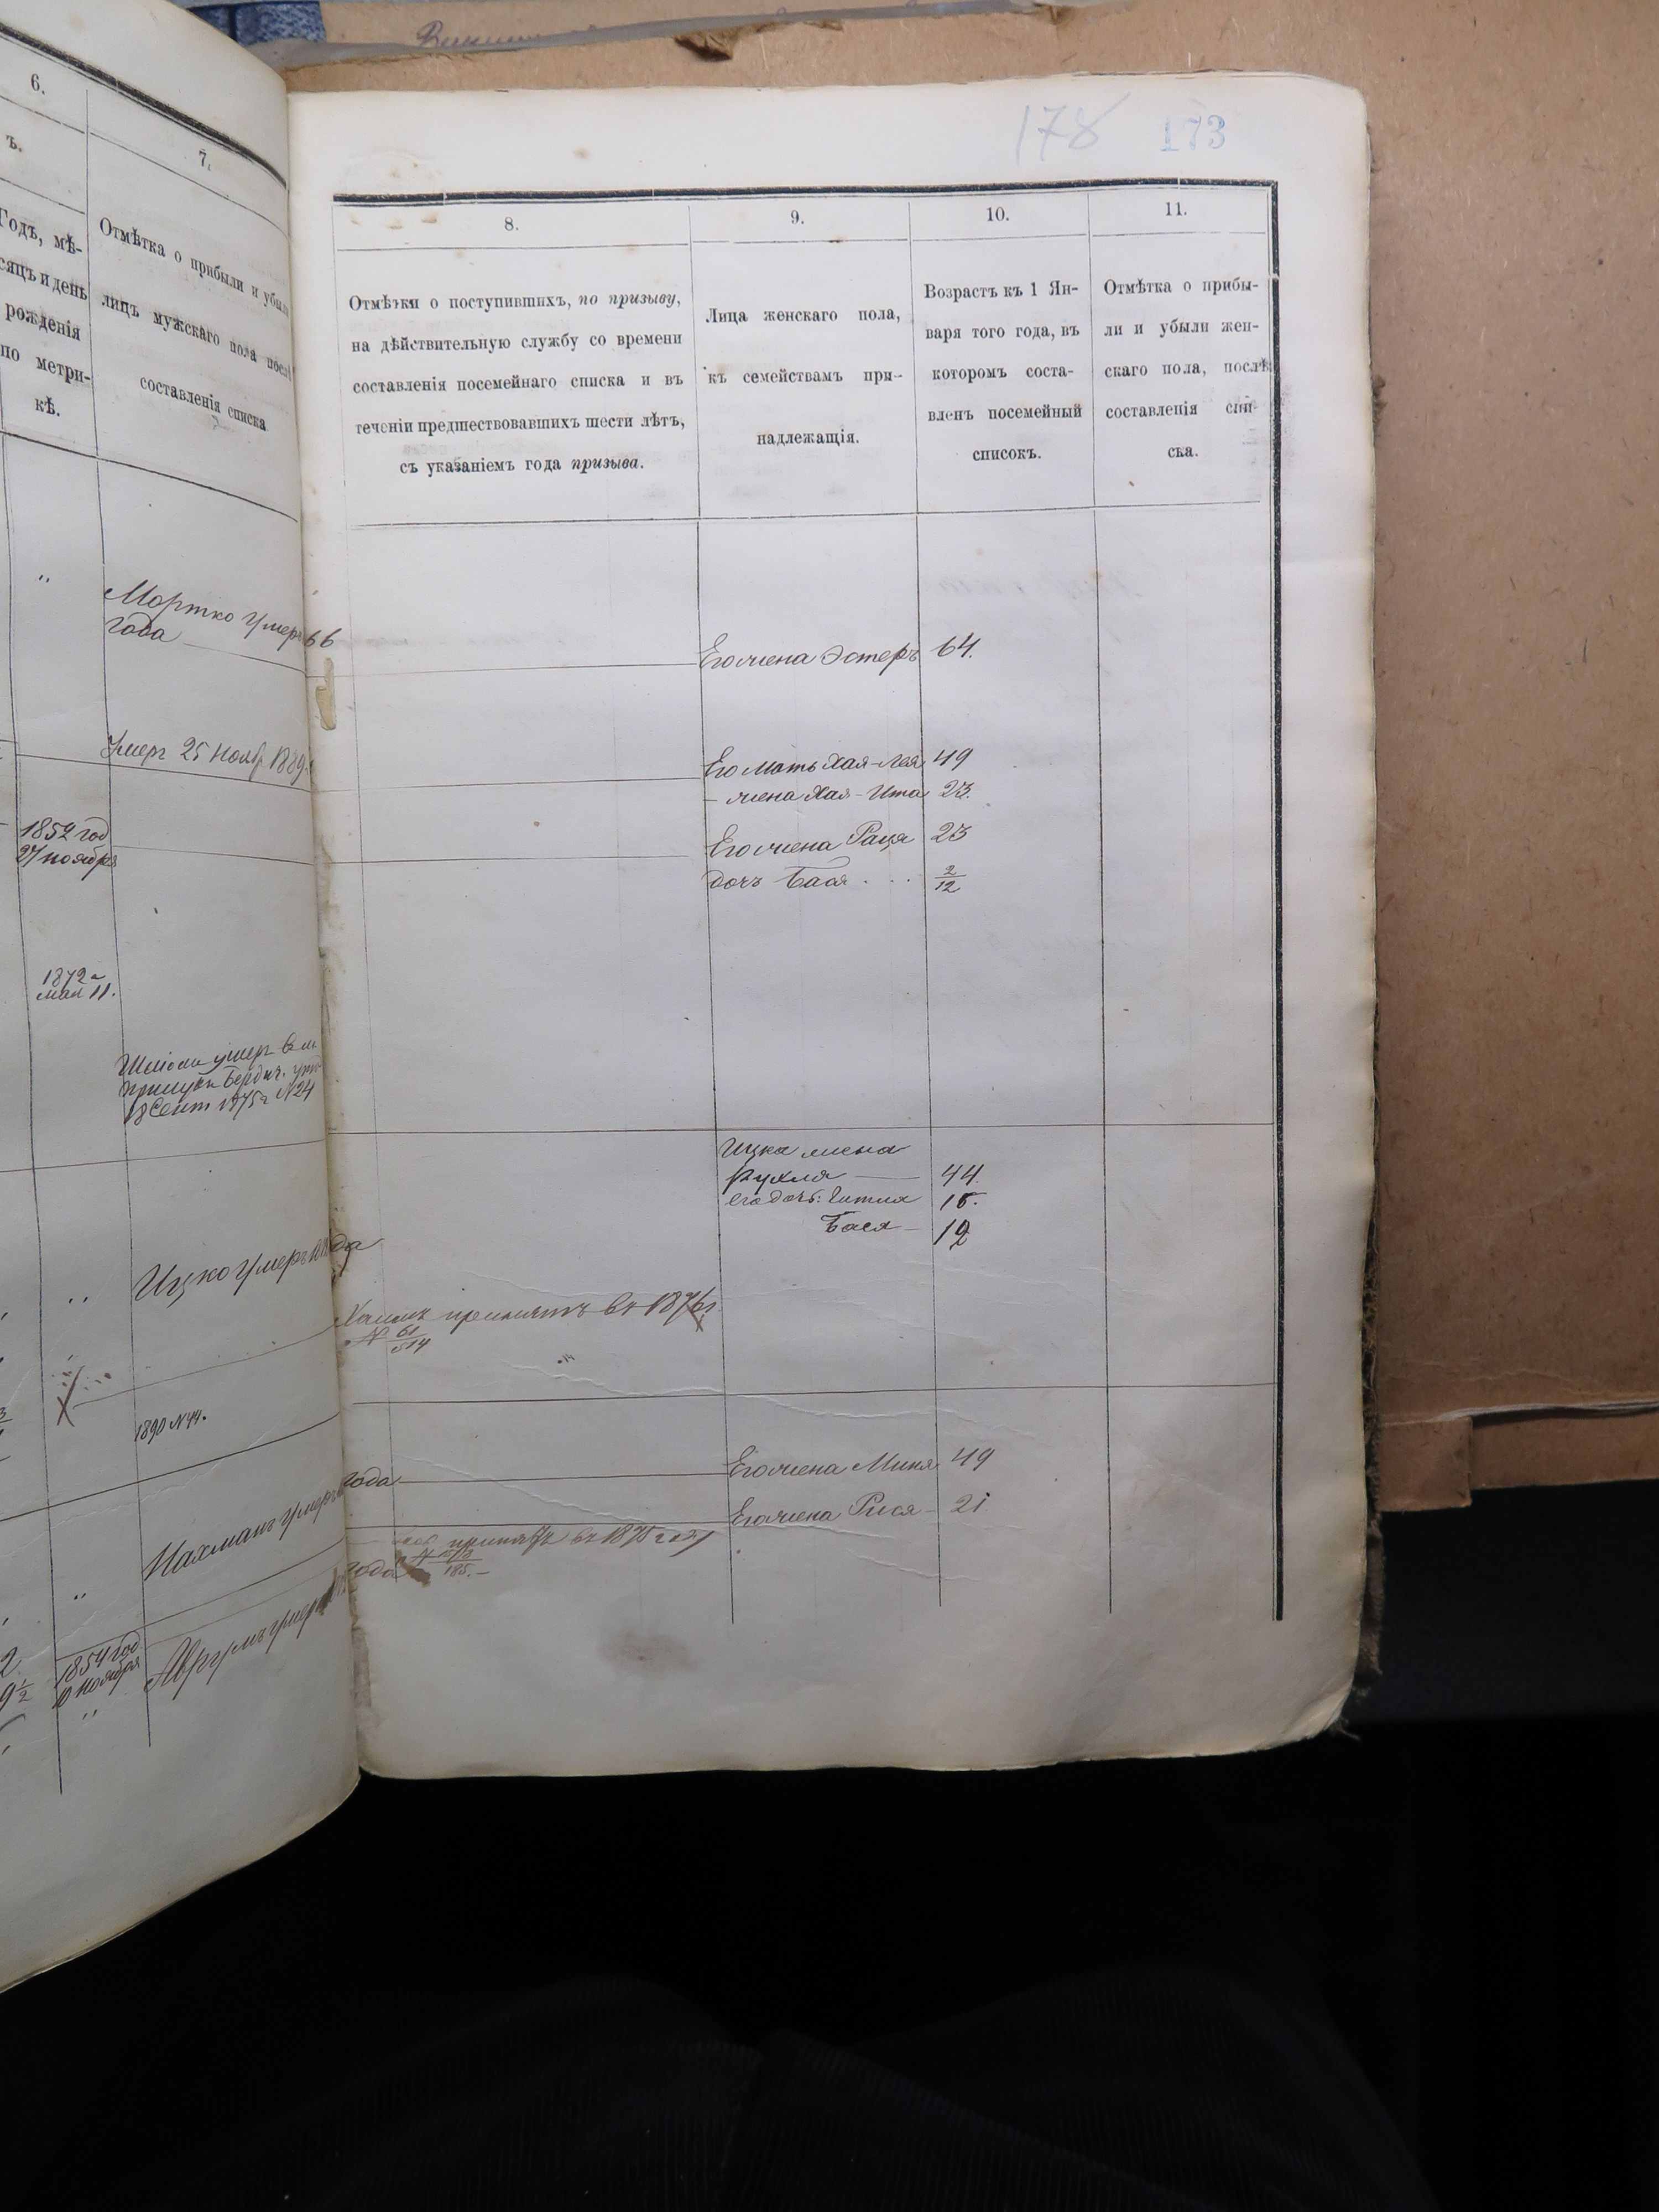 6.
ъ.
Годъ, мѣ-
сяцъ и день
рожденія
по метри-
кѣ.
7.
Отмѣтка о прибыли и убыли
лицъ мужскаго пола послѣ
составленія списка
"
Мортко умеръ 66
года
Умеръ 25 Нояб 1889
1852 год
27 ноября
1872 г
мая 11.
умер в м.
Бердич. уѣз
18 Сент 1875 г N 24
Ицко умеръ года
1890 N 44.
Нахманъ умеръ года
2
9 1/2
1854 год
10 ноября
"
Аврумъ умеръ года
178 173
8.
Отмѣтки о поступившихъ, по призыву,
на дѣйствительную службу со времени
составленія посемейнаго списка и въ
теченіи предшествовавшихъ шести лѣтъ,
съ указаніемъ года призыва.
9.
Лица женскаго пола,
къ семействамъ при-
надлежащія.
10.
Возрастъ къ 1 Ян-
варя того года, въ
которомъ соста-
вленъ посемейный
списокъ.
11.
Отмѣтка о прибы-
ли и убыли жен-
скаго пола, послѣ
составленія спи-
ска.
Его жена Эстеръ 64.
Его мать Хая-Лея 49
- жена Хая-Ита 23.
Его жена Рася 23
дочь Бася . . . 2/12
Ицка жена
Рухля — 44.
его дочь: Гитля 15.
Бася — 12
Хаимъ принятъ въ 1876 г.
N 61/514
Его жена Миня 49
Его жена Рися - 21
принятъ въ 1875 году
185. -